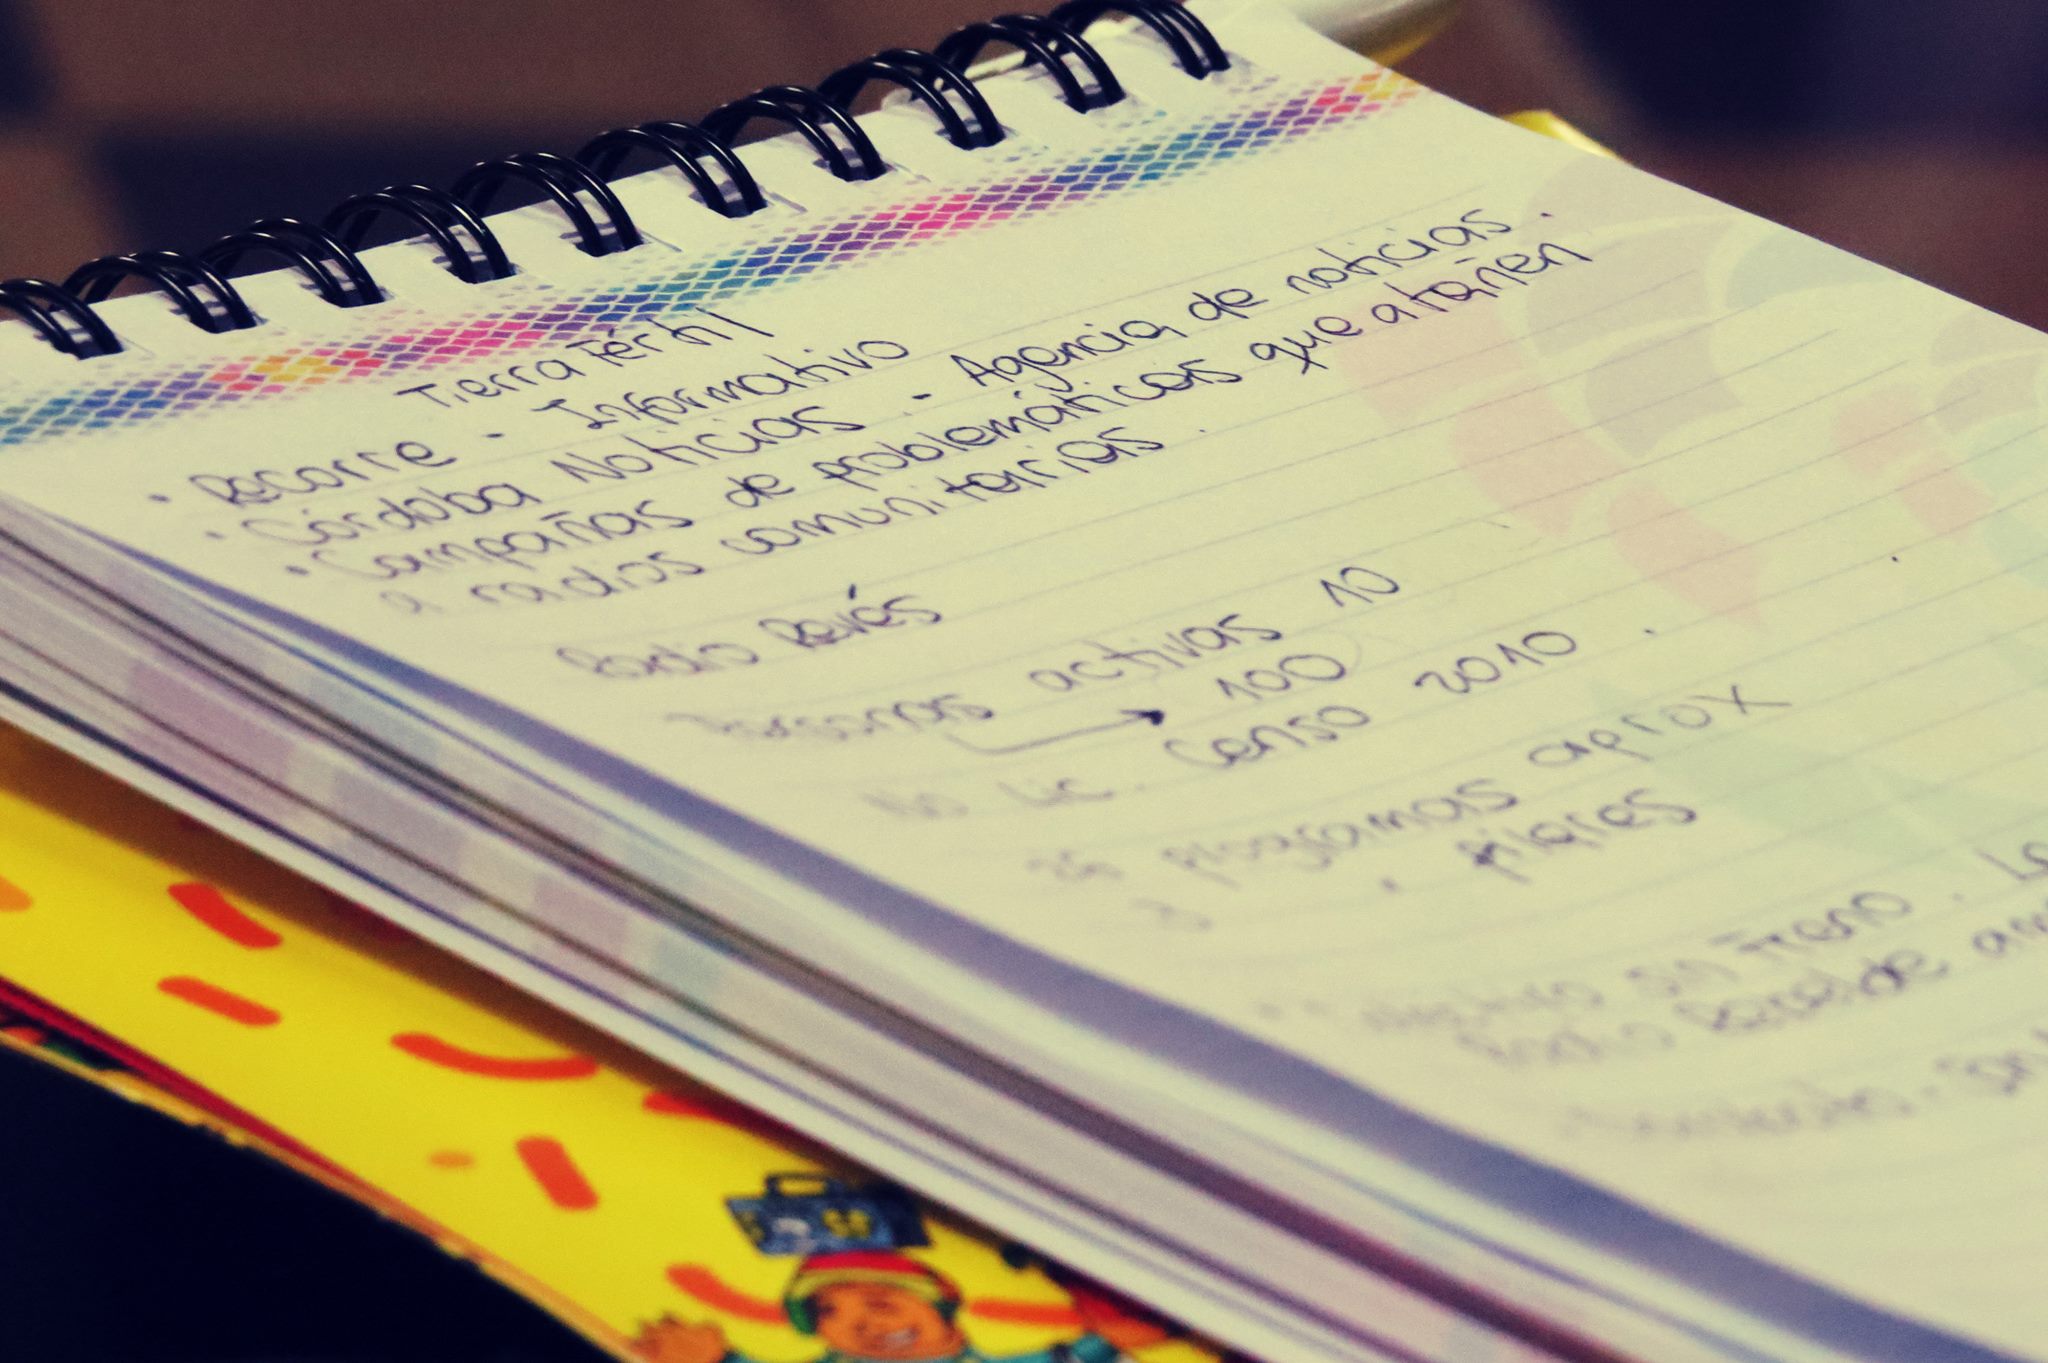 Tierra Fértil
• Recorre - Informativo
• Córdoba Noticias - Agencia de noticias.
• Campañas de problemáticas que atañen
a radios comunitarias.
Radio Revés
Personas activas 10
→ 100
No Lic. Censo 2010
programas aprox
3 . pilares
sin Freno. La
Radio